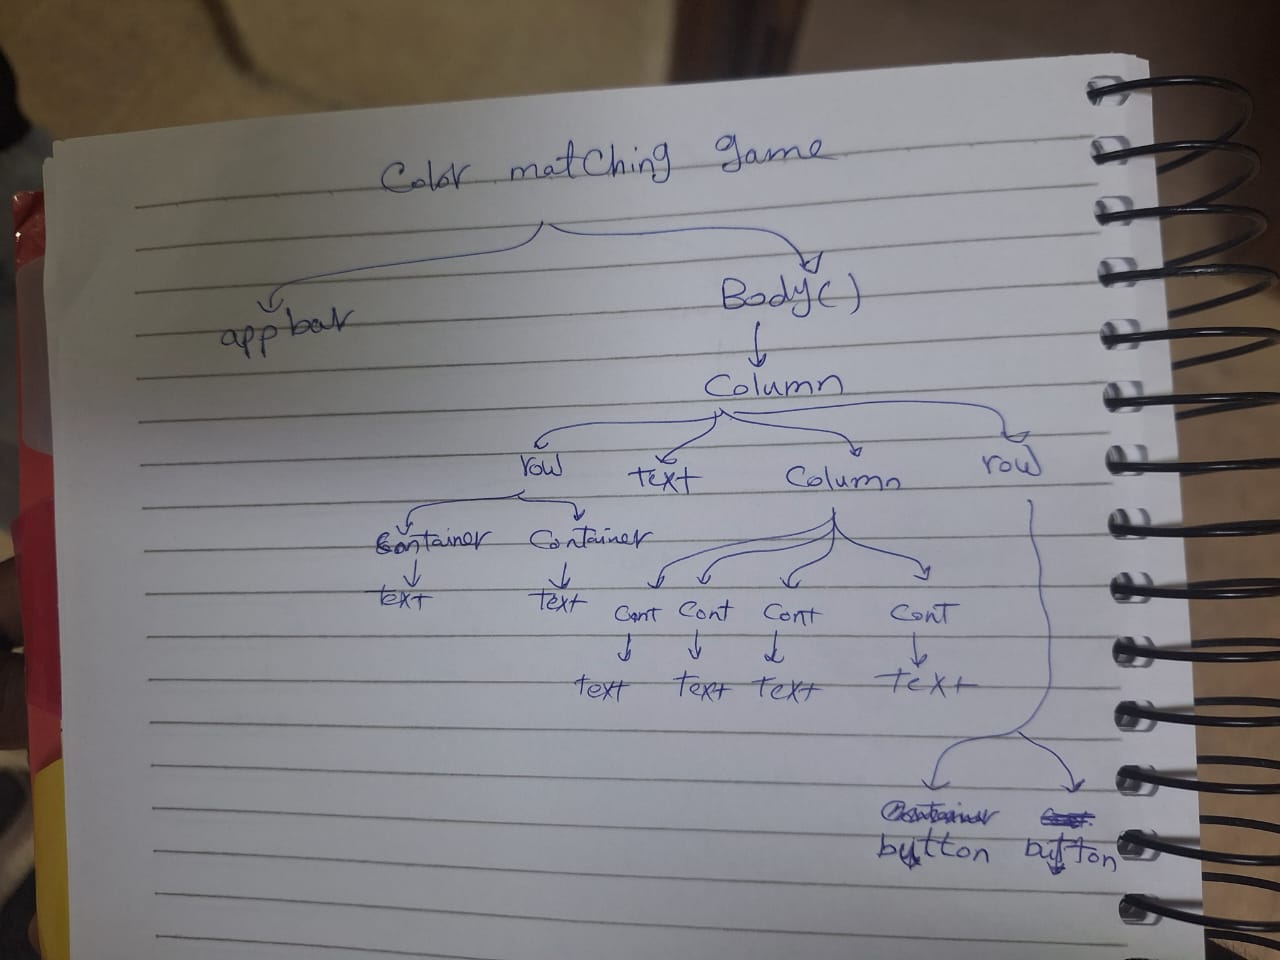 Color matching game
app bar
Body()
Column
row text Column row
Container Container
text text
Cont Cont Cont Cont
text text text text
button button